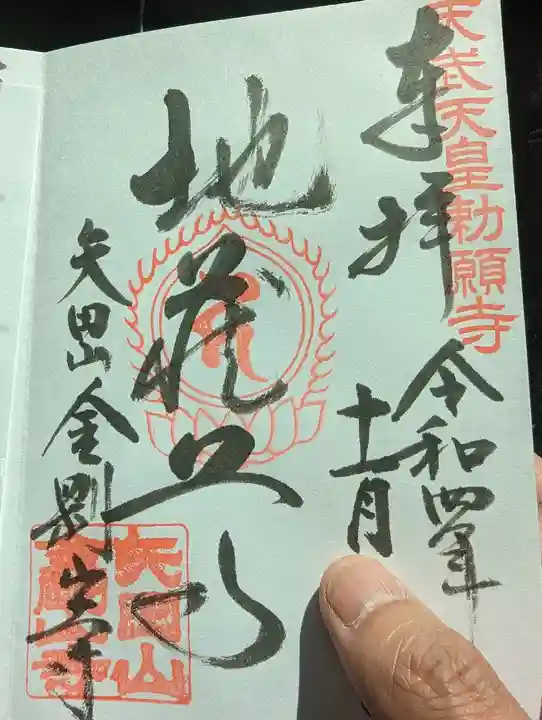 天武天皇勅願寺
奉拝
令和四年
十一月
地蔵尊
矢田山
金剛山寺
矢田山
金剛山寺